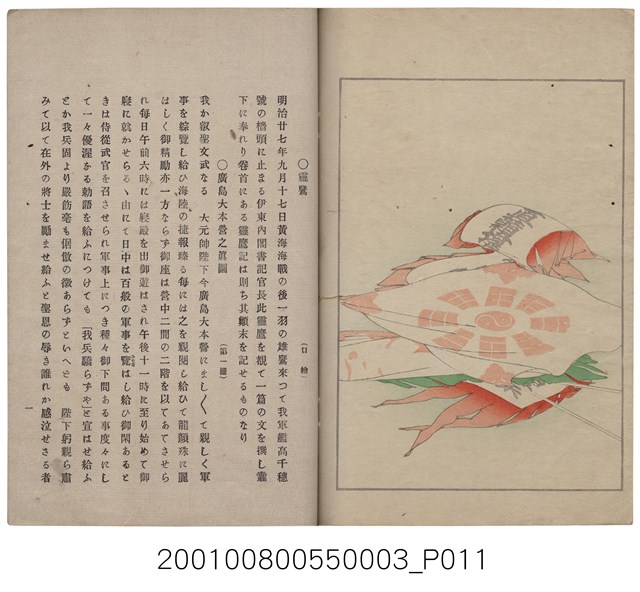 ○靈鷲　（口繪）
明治廿七年九月十七日黃海海戰の後一羽の雄鷲來つて我軍艦高千穗
號の檣頭に止まる伊東內閣書記官長此靈鷹を觀て一篇の文を撰し靈
下に奉れり卷首にある靈鷹記は則ち其顚末を記せるものなり
○廣島大本營之眞圖　（第一圖）
我か叡聖文武なる　大元帥陛下今廣島大本營にましく〵て親しく軍
事を綜覽し給ひ海陸の捷報臻る每には之を親閱し給ひて龍顏殊に麗
はしく御精勵亦一方ならず御座は營中二間の二階を以てあてさせら
れ每日午前六時には寢殿を出御遊はされ午後十一時に至り始めて御
寢に就かせらるゝ由にて日中は百般の軍事を覽はし給ひ御閑あると
きは侍從武官を召させられ軍事上につき種々御下問ある事度々にし
て一々優渥なる勅語を給ふにつけても「我兵驕らずや」と宣はせ給ふ
とか我兵固より嚴肅毫も倨傲の徵あらずといへとも　陛下躬親ら肅
みて以て在外の將士を勵ませ給ふと聖恩の辱き誰れか感泣せさる者
一
200100800550003_P011